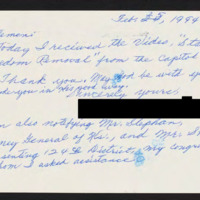 Feb. 25, 1994
emen:
oday I received the Video, "Sta
edom Removal" from the Capitol
Thank you. May God be with y
de you in His good way.
Sincerely yours,
m also notifying Mr. Stephan,
ney General of Ks., and Mr. S
senting 124th District, my congr
hom I asked assistance